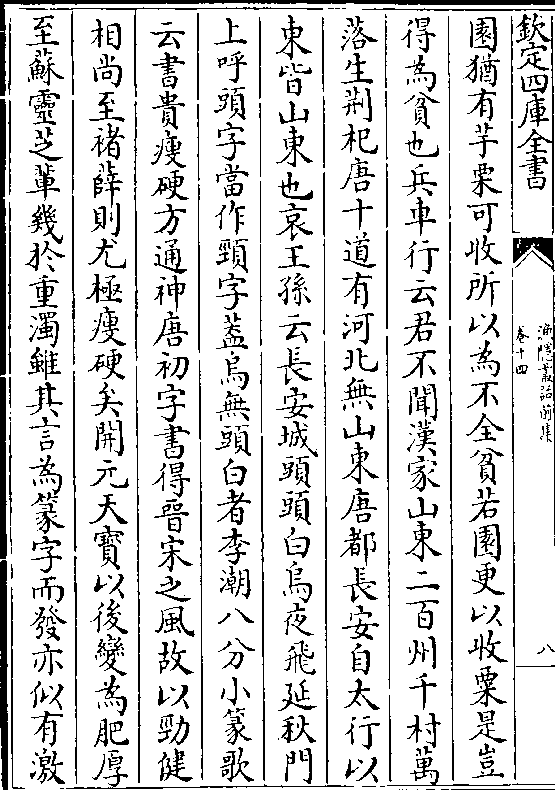 欽定四庫全書
漁隱叢話前集
卷十四
八
園猶有芋栗可收所以為不全貧若園更以收粟是豈
得為貧也兵車行云君不聞漢家山東二百州千村萬
落生荆杞唐十道有河北無山東唐都長安自太行以
東皆山東也哀王孫云長安城頭頭白烏夜飛延秋門
上呼頭字當作頸字葢烏無頭白者李潮八分小篆歌
云書貴瘦硬方通神唐初字書得晉宋之風故以勁健
相尚至褚薛則尤極瘦硬矣開元天寶以後變為肥厚
至蘇靈芝輩幾於重濁雖其言為篆字而發亦似有激